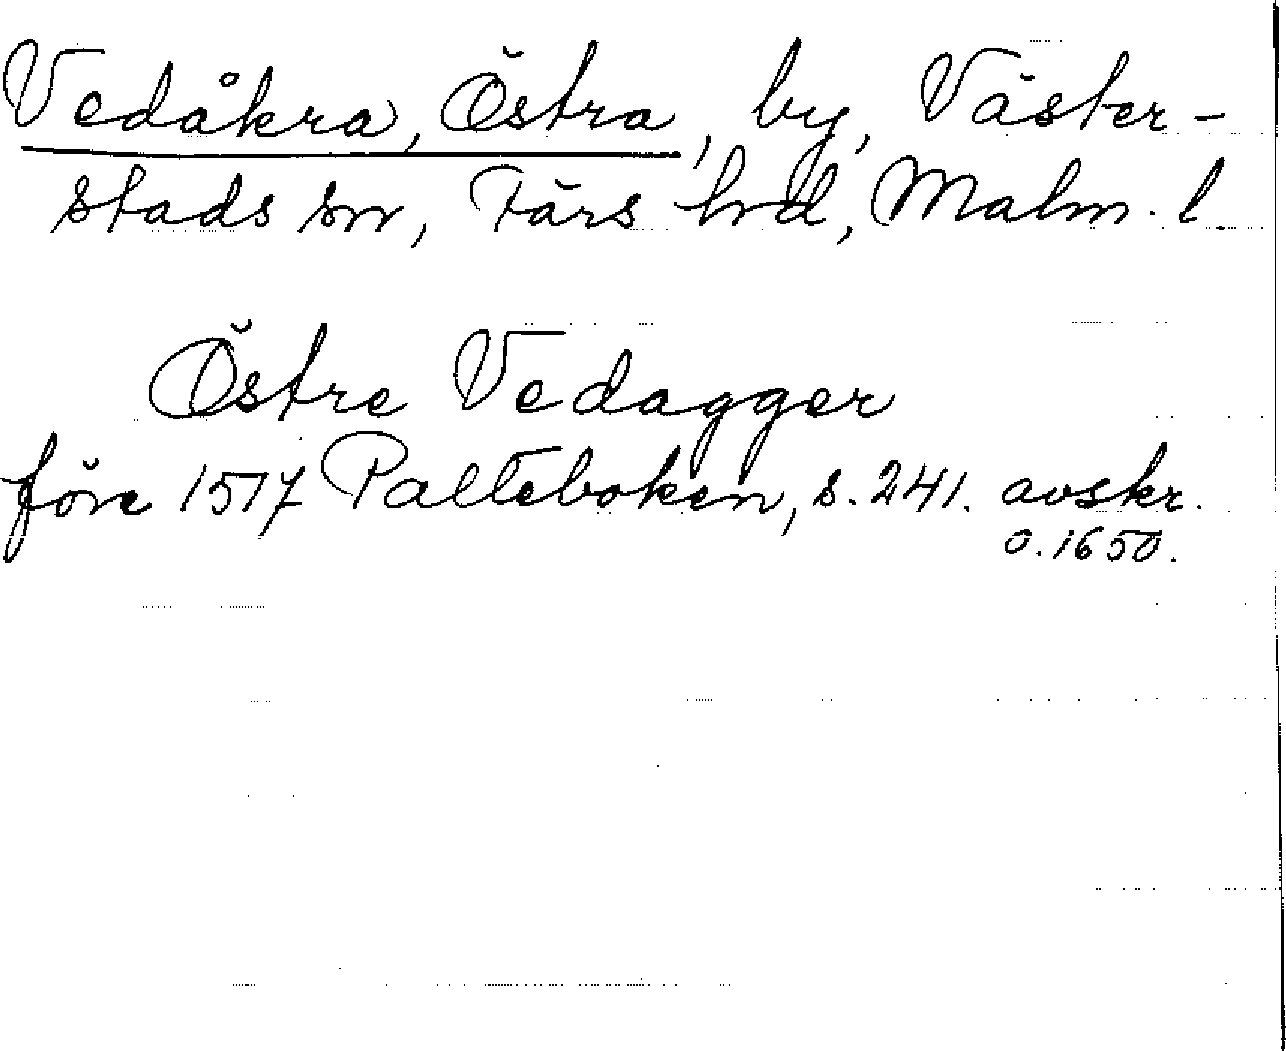 Vedåkra, Östra, by, Väster-
stads sn, Färs hrd, Malm. l.
Östre Vedagger
före 1517 Palteboken, s. 241. avskr.
o. 1650.